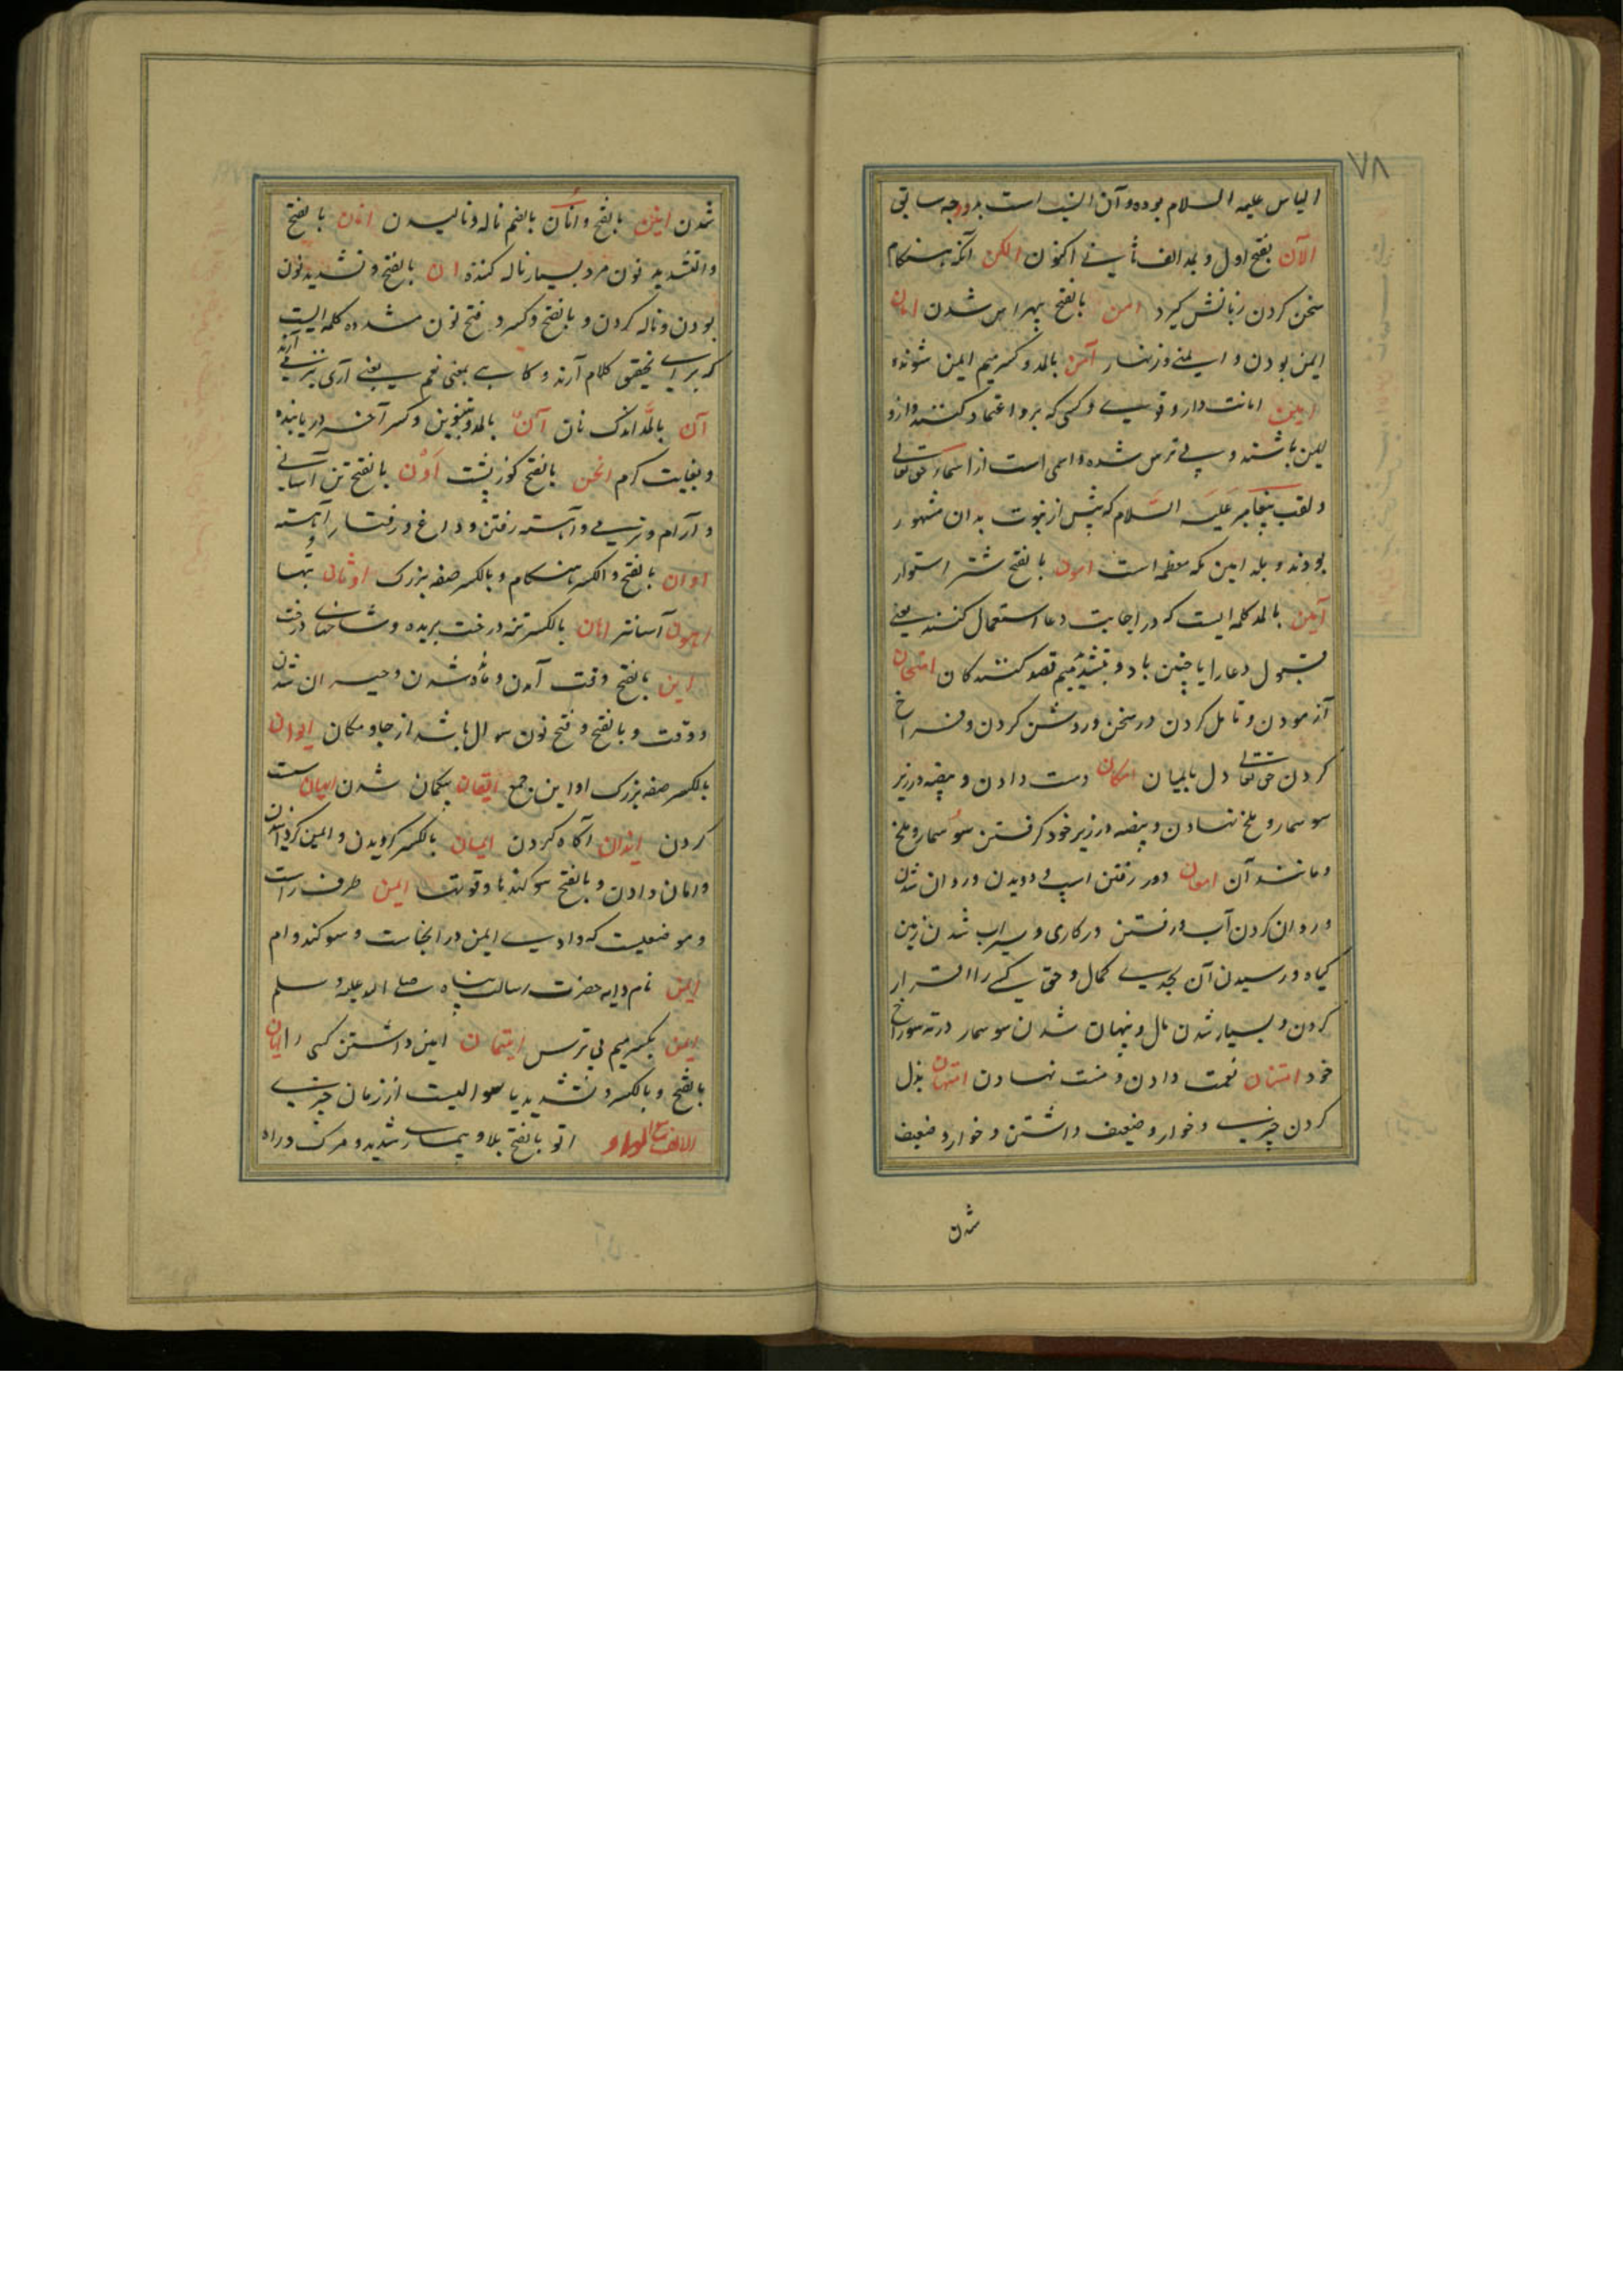 ٧٨
الیاس علیه السلام بوده و آن الیسب است بدو وجه سابق
الآن بفتح اول و بمد الف ثانی اکنون الکن آنکه بهنگام
سخن کردن زبانش گیرد امن بالفتح بیهراس شدن امان
ایمن بودن و ایمنی و زنهار آمن بالمد و کسر میم ایمن شونده
امین امانت دار و قوی و کسی که برو اعتماد کنند و ازو
ایمن باشند و بی ترس شده و اسمی است از اسماء حق تعالی
و لقب پیغامبر علیه السلام که پیش از نبوت بدان مشهور
بودند و بلد امین مکه معظمه است امون بالفتح شتر استوار
آمین بالمد کلمه ایست که در اجابت دعا استعمال کنند یعنی
قبول دعا را یا چنین باد و بتشدید میم قصد کنندگان امتحان
آزمودن و تامل کردن در سخن و روشن کردن و فراخ
کردن حق تعالی دل بایمان امکان دست دادن و بیضه در زیر
سوسمار و ملخ نهادن و بیضه در زیر خود گرفتن سوسمار و ملخ
و مانند آن امعان دور رفتن اسپ و دویدن و روان شدن
و روان کردن آب و رفتن در کاری و سیراب شدن زمین
گیاه و رسیدن آن بحدی کمال و حق کسی را اقرار
کردن و بسیار شدن مال و پنهان شدن سوسمار در ته سوراخ
خود امتنان نعمت دادن و منت نهادن امتهان بذل
کردن چیزی و خوار و ضعیف داشتن و خوار و ضعیف
شدن
شدن انین بالفتح و اُنان بالضم ناله و نالیدن انان بالفتح
و التشدید نون مرد بسیار ناله کننده ان بالفتح و تشدید نون
بودن و ناله کردن و بالفتح و کسر و فتح نون مشدده کلمه ایست
که برای تحقیق کلام آرند و گاهی بمعنی نعم یعنی آری نیز آرند
آن بالمد اندک نان آنٍ بالمد و تنوین و کسر آخر دریابنده
و بغایت گرم انحن بالفتح کوزپشت اَوْن بالفتح تن آسانی
و آرام و نرمی و آهسته رفتن و داغ و رفتار آهسته
اوان بالفتح و الکسر هنگام و بالکسر صفه بزرگ اوثان بتها
اهون آسانتر اهان بالکسر تنه درخت بریده و شاخهای درخت
این بالفتح وقت آمدن و مانده شدن و حیران شدن
و وقت و بالفتح و فتح نون سوال باشد از جا و مکان ایوان
بالکسر صفه بزرگ اواین جمع ایقان بیگمان شدن
کردن ایذان آگاه کردن ایمان بالکسر گرویدن و ایمن گردانیدن
و امان دادن و بالفتح سوگندها و قوتها ایمن طرف راست
و موضعیست که وادی ایمن در آنجاست و سوگند و ام
ایمن نام دایه حضرت رسالت پناه صلی الله علیه و سلم
ایمن بکسر میم بی ترس ایتمان امین داشتن کسی را ایان
بالفتح و بالکسر و تشدید یا سوالیست از زمان چیزی
الالف مع الواو اتو بالفتح بلا و بیماری شدید و مرگ و راه